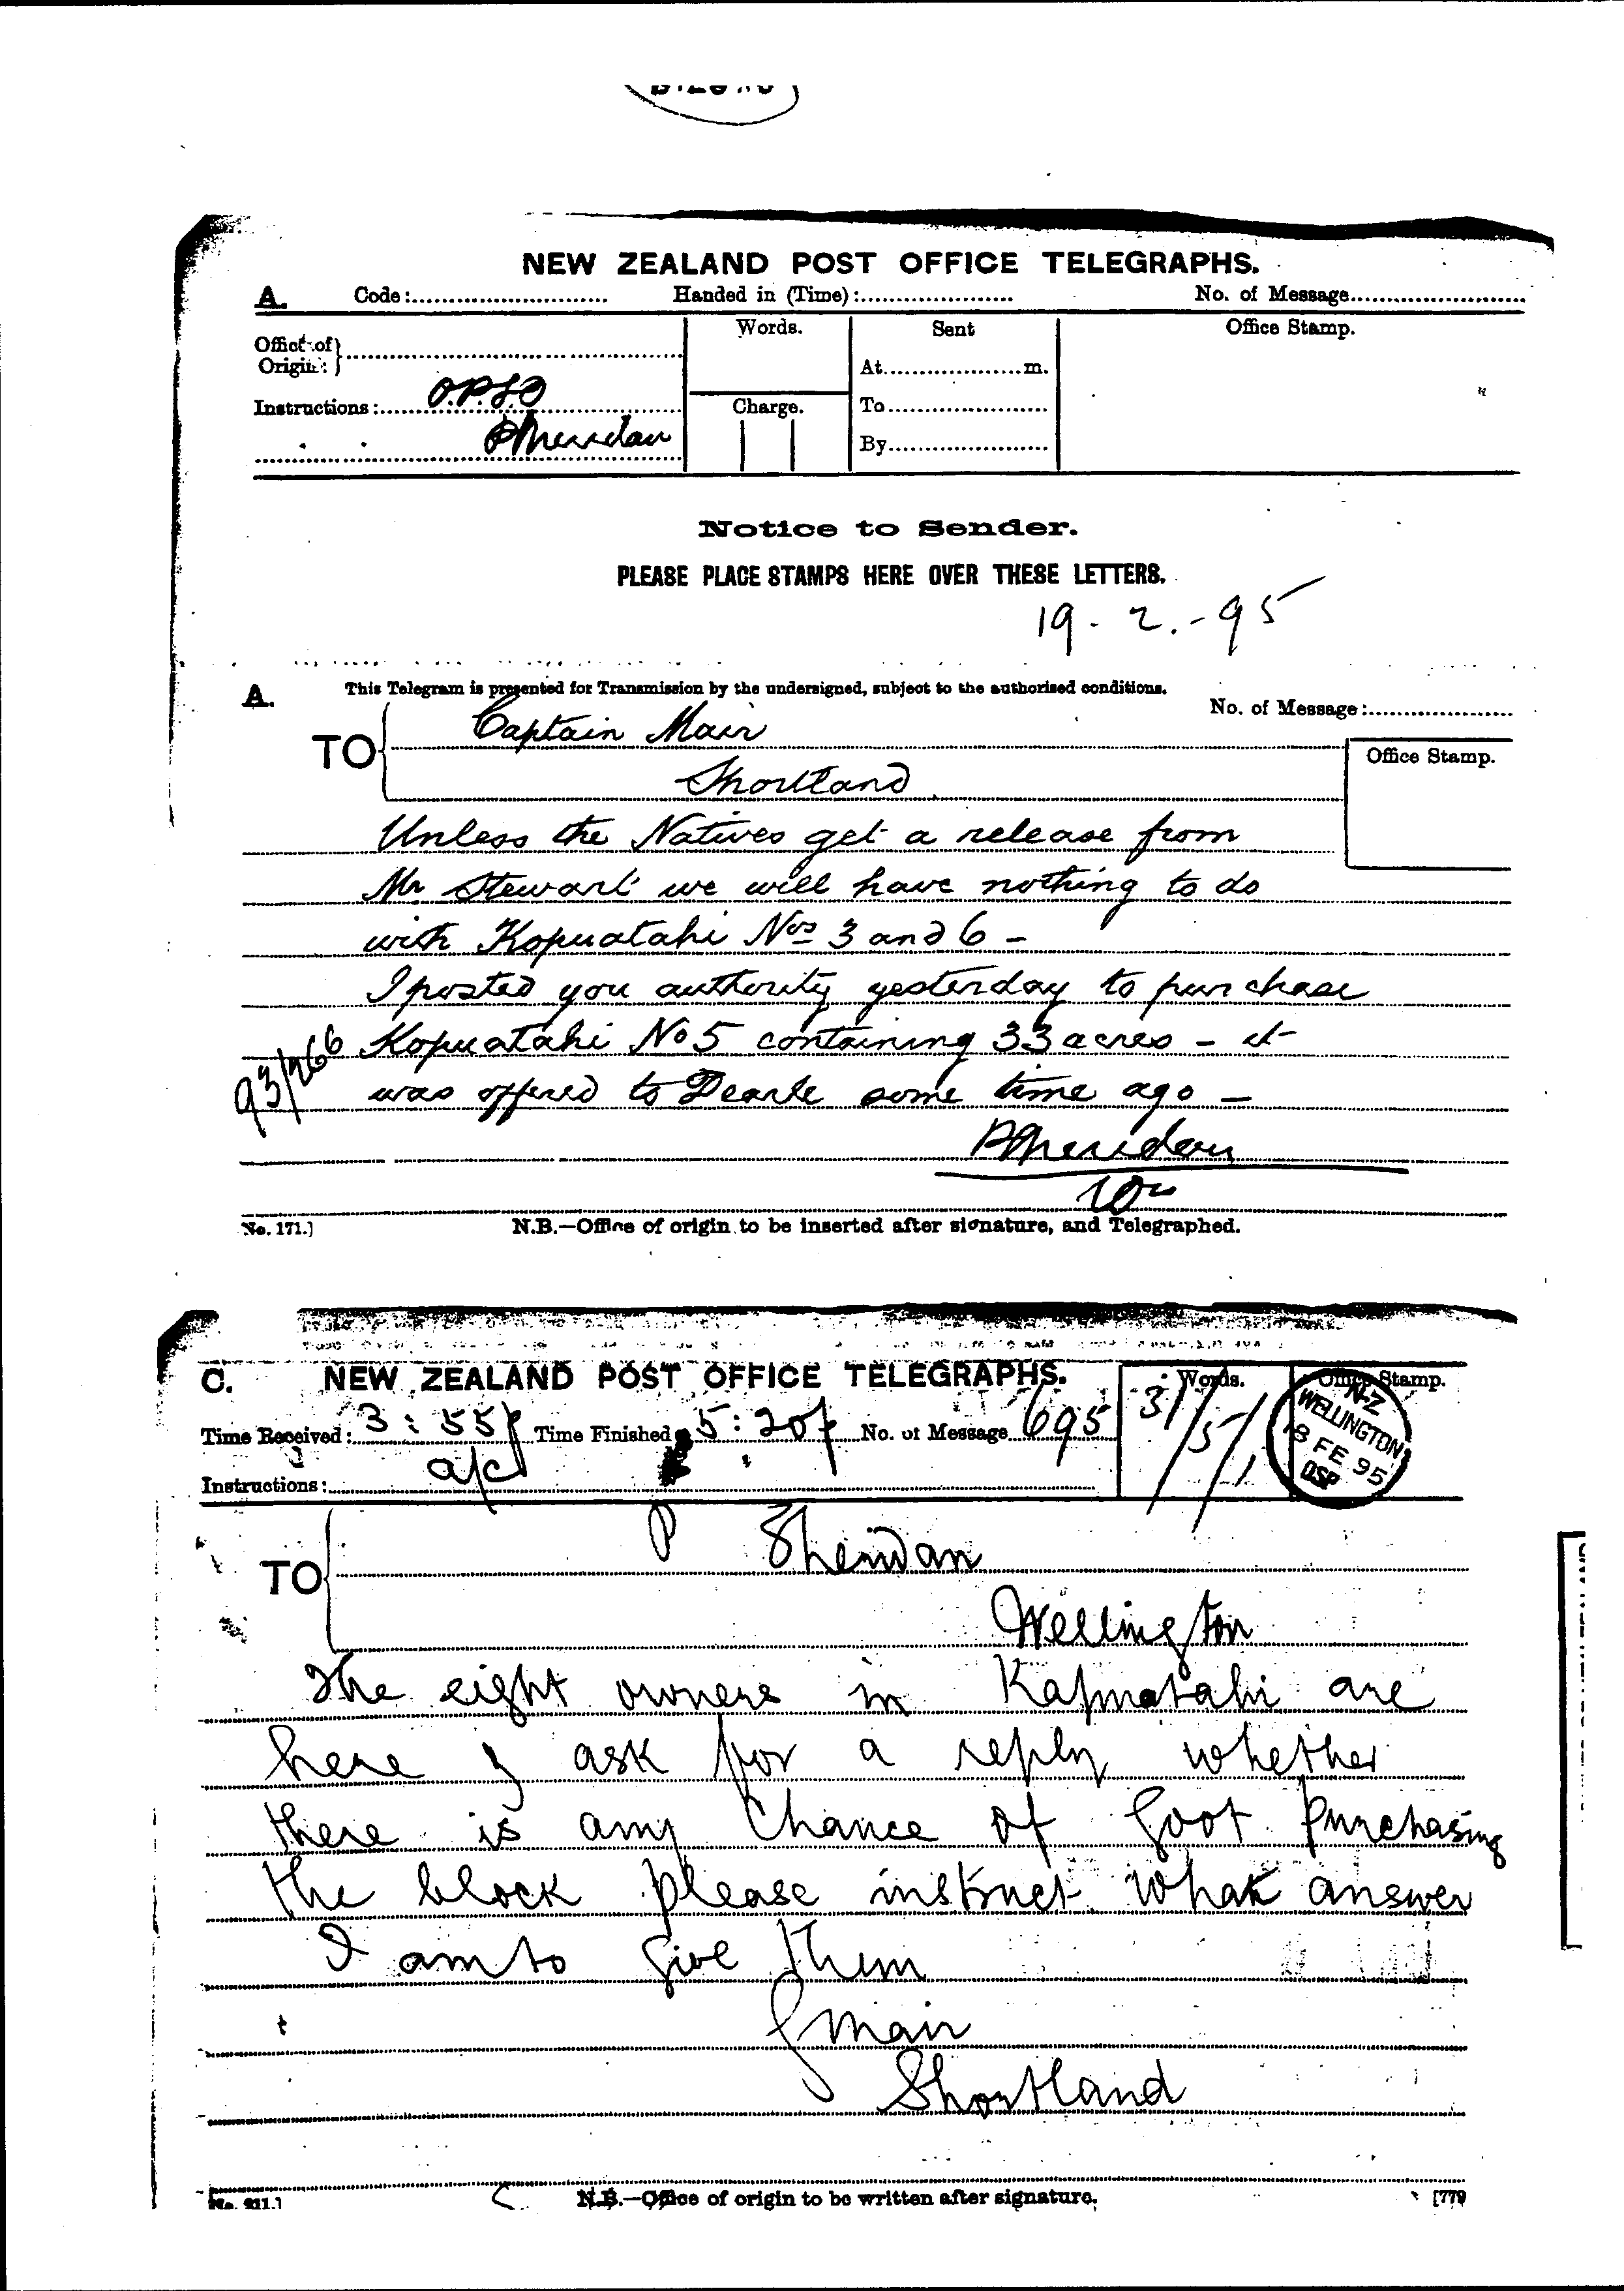 NEW ZEALAND POST OFFICE TELEGRAPHS.
A. Code: Handed in (Time): No. of Message
Office of Origin: Words. Sent Office Stamp.
At m.
Instructions: O.P.S.O Charge. To
PSheridan By
Notice to Sender.
PLEASE PLACE STAMPS HERE OVER THESE LETTERS.
19 - 2. - 95
A. This Telegram is presented for Transmission by the undersigned, subject to the authorised conditions.
No. of Message:
TO Captain Mair
Office Stamp.
Shortland
Unless the Natives get a release from
Mr Stewart we will have nothing to do
with Kopuatahi Nos 3 and 6 -
I posted you authority yesterday to purchase
Kopuatahi No 5 containing 33 acres - it
93/266
was offered to Dearle some time ago -
PSheridan
No. 171.] N.B.—Office of origin to be inserted after signature, and Telegraphed.
C. NEW ZEALAND POST OFFICE TELEGRAPHS. Words. Office Stamp.
Time Received: 3:55p Time Finished 5:20p No. of Message 695 31/5/1
N-Z WELLINGTON 18 FE 95 OSP
Instructions: a/c
TO P Sheridan
Wellington
The eight owners in Kapuatahi are
here & ask for a reply whether
there is any chance of Govt purchasing
the block please instruct what answer
I am to give them
G Mair
Shortland
No. 211.] N.B.—Office of origin to be written after signature. [779